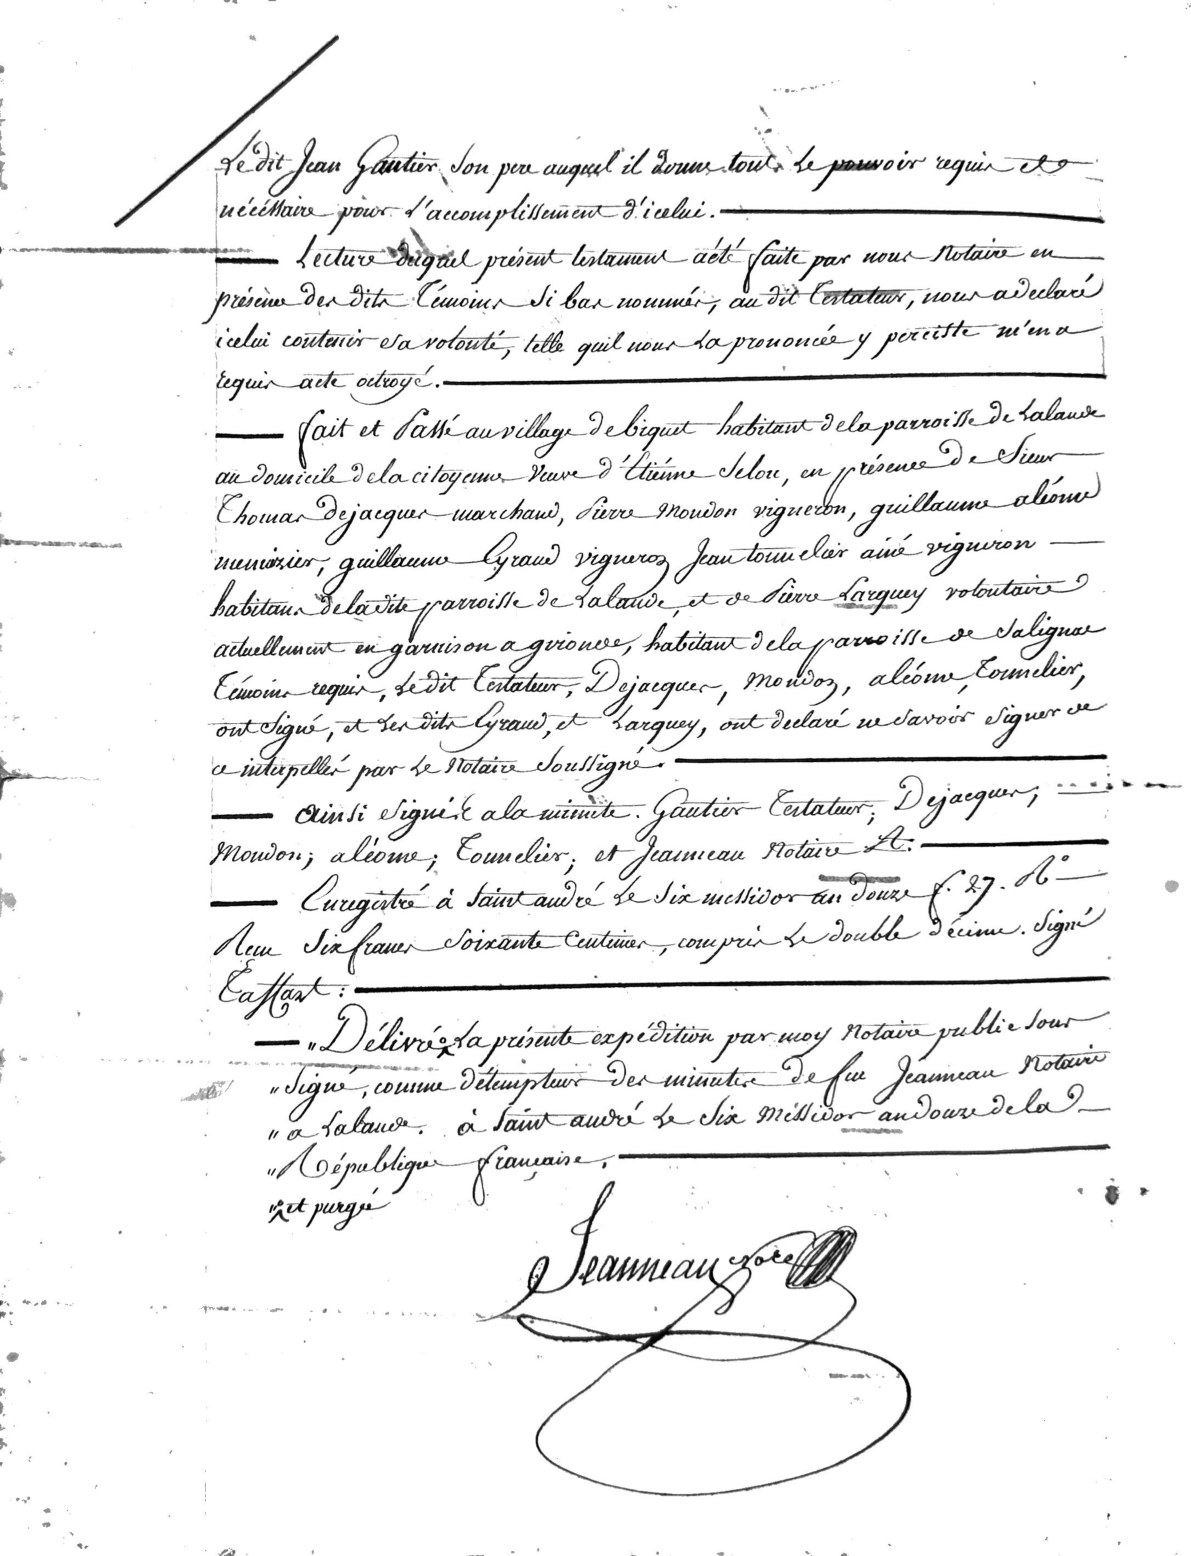 Le dit Jean Gautier son pere auquel il donne tout le pouvoir requis et
nécéssaire pour l'accomplissement d'icelui.
Lecture duquel présent testament a été faite par nous Notaire en
présence des dits Témoins si bas nommés, au dit Testateur, nous a declaré
icelui contenir sa volonté, telle quil nous la prononcée y perciste m'en a
requis acte octroyé.
fait et Passé au village de biquet habitant de la parroisse de Lalande
au domicile de la citoyenne Veuve d'Étiénne Selon, en présence de Sieur
Thomas Dejacques marchand, Pierre Mondon vigneron, guillaume aléome
menuizier, guillaume Cyraud vigneron Jean tonnelier ainé vigneron
habitans de la dite parroisse de Lalande, et de Pierre Larquey volontaire
actuellement en garnison a gironde, habitant de la parroisse de Salignac
Témoins requis, le dit Testateur, Dejacques, Mondon, aléome, Tonnelier,
ont signé, et les dits Cyraud, et Larquey, ont declaré ne savoir signer de
ce interpellés par le Notaire soussigné.
Ainsi signés a la minute. Gautier Testateur; Dejacques;
Mondon; aléome; Tonnelier; et Jeanneau Notaire
Enregistré à Saint andré le six messidor an douze f. 27. Ro
Reçu six francs soixante centimes, compris le double décime. signé
Taffart:
" Délivré la présente expédition par moy Notaire public sous
" signé, comme détempteur des minutes de feu Jeanneau Notaire
" a Lalande. à Saint andré le six Méssidor an douze de la
" République française.
" et purgée
Jeanneau Nore